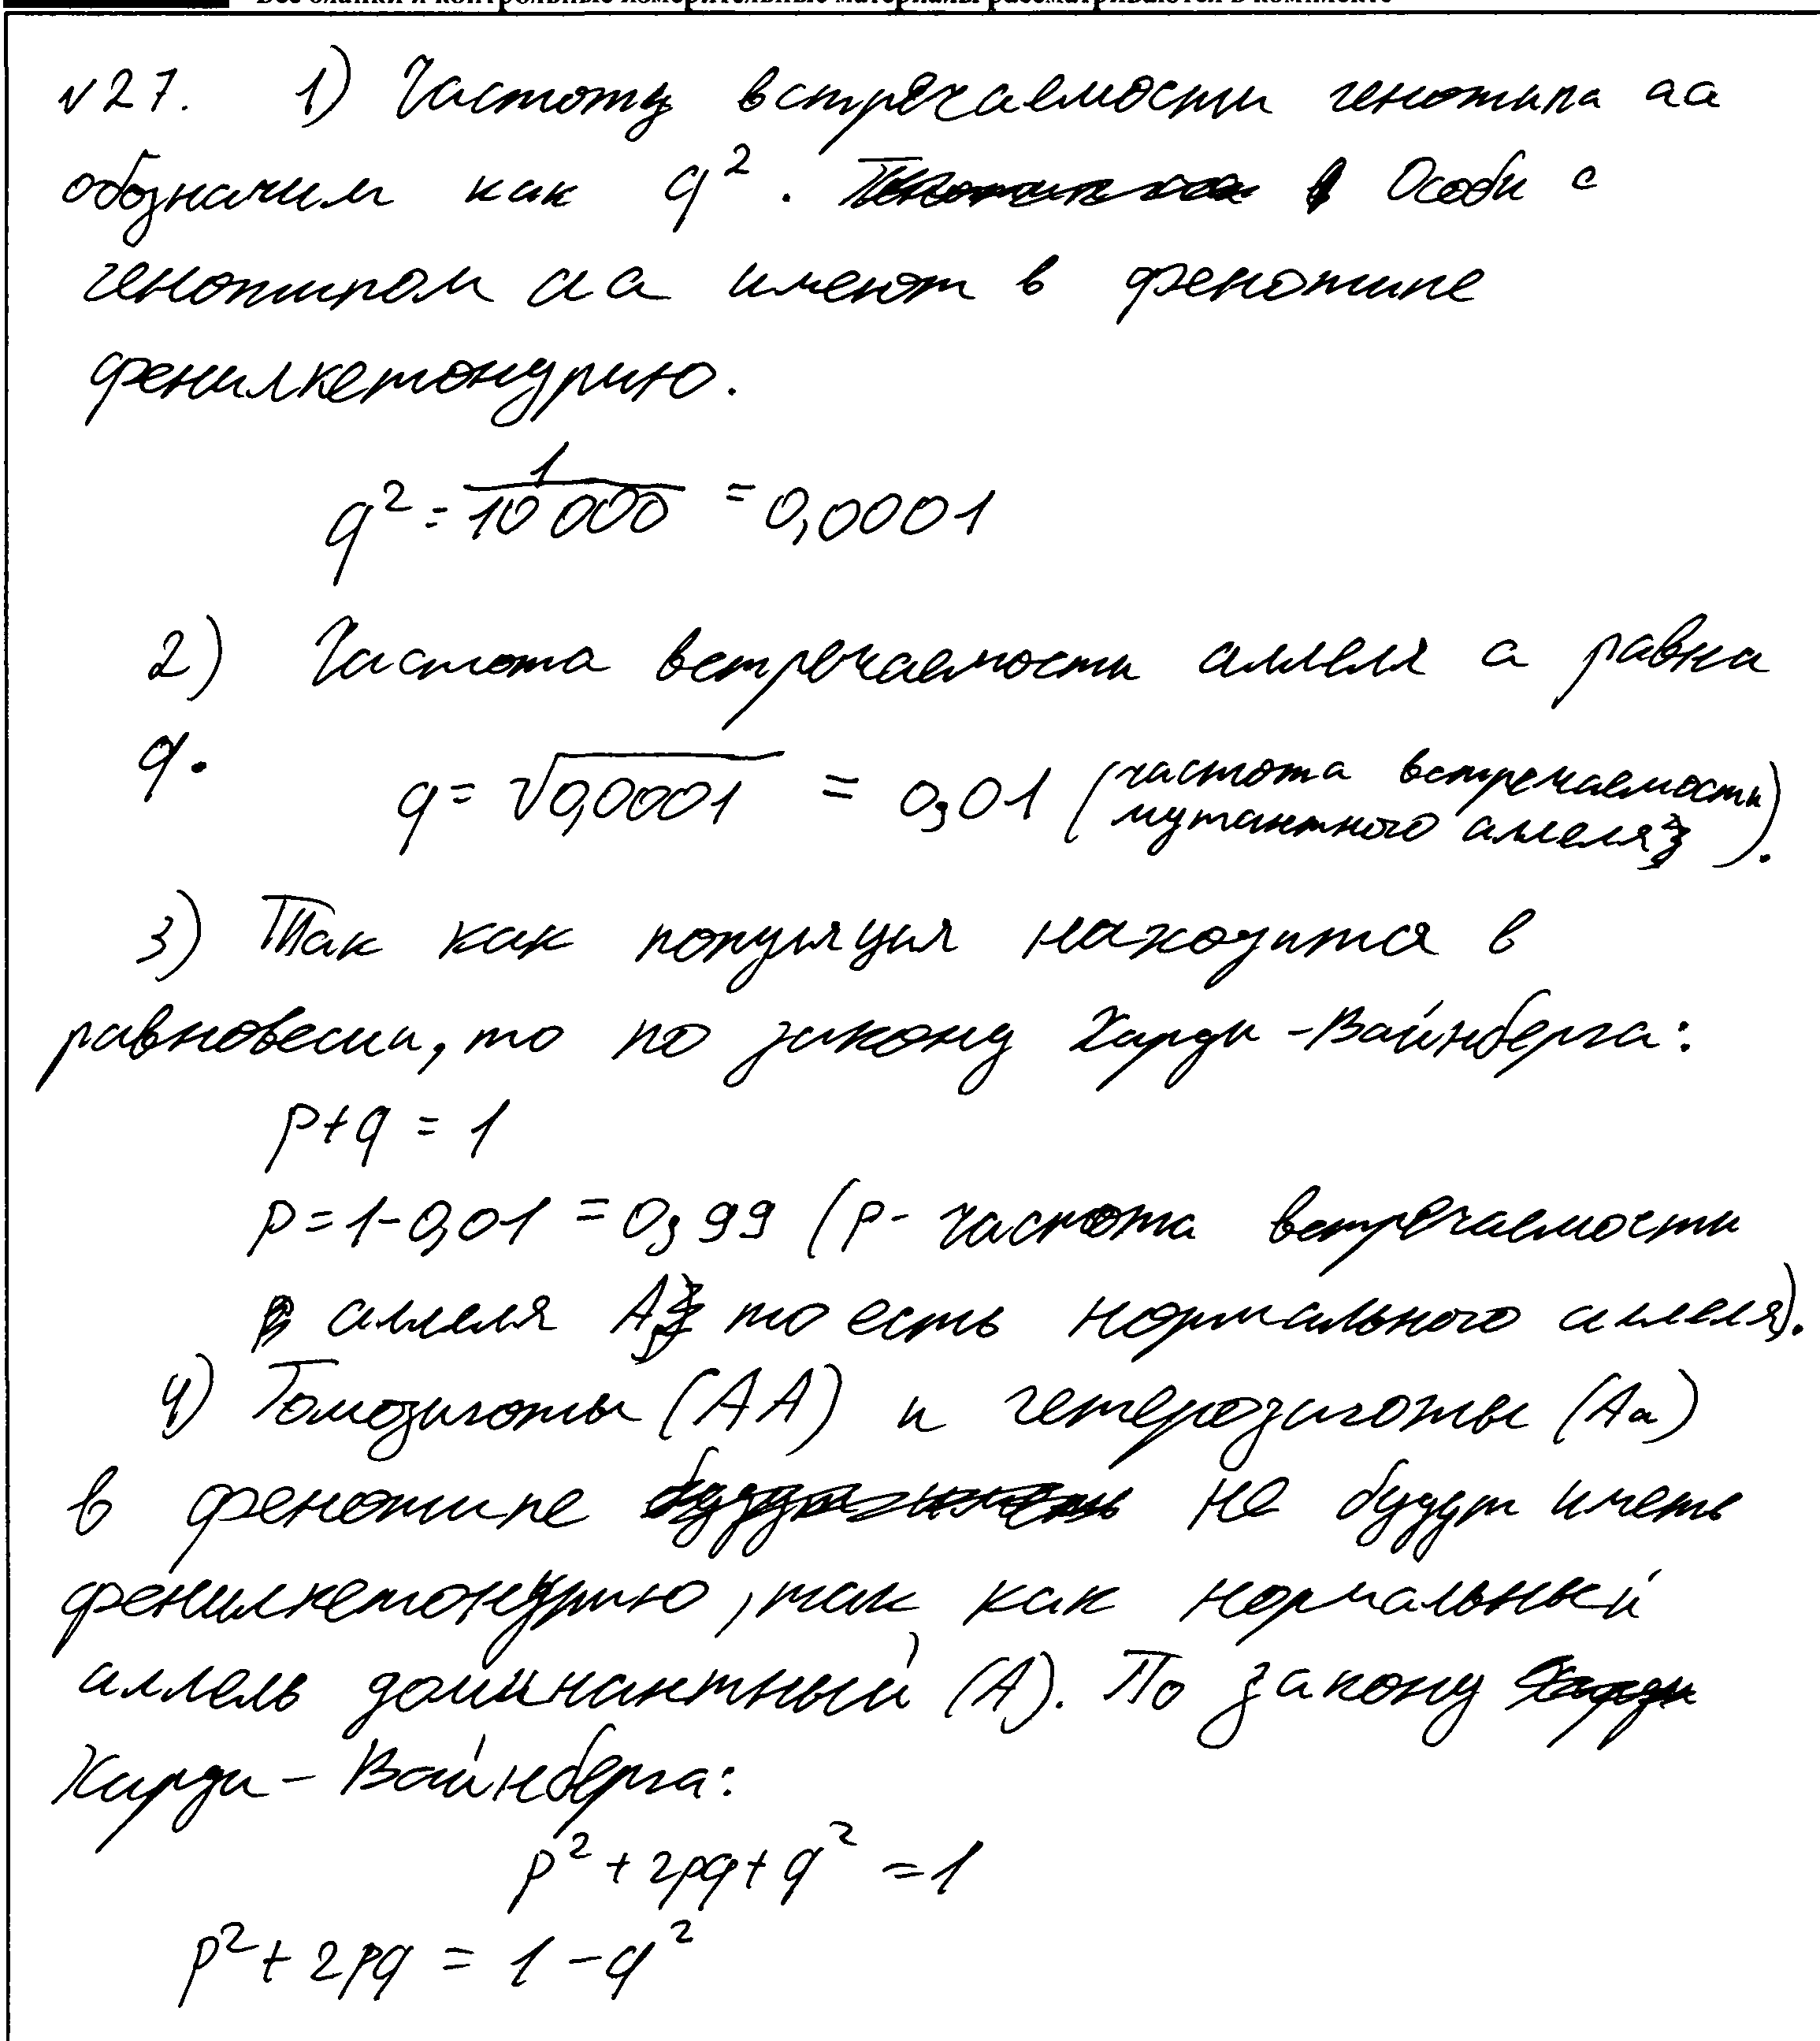 Все бланки и контрольные измерительные материалы рассматриваются в комплекте
№27. 1) Частоту встречаемости генотипа аа
обозначим как q². Особи с
генотипом аа имеют в фенотипе
фенилкетонурию.
q² = 1/10 000 = 0,0001
2) Частота встречаемости аллеля а равна
q.
q = √0,0001 = 0,01 (частота встречаемости
мутантного аллеля).
3) Так как популяция находится в
равновесии, то по закону Харди-Вайнберга:
p+q = 1
p=1-0,01 = 0,99 (p- частота встречаемости
аллеля А, то есть нормального аллеля).
4) Гомозиготы (АА) и гетерозиготы (Аа)
в фенотипе не будут иметь
фенилкетонурию, так как нормальный
аллель доминантный (А). По закону
Харди - Вайнберга:
p² + 2pq + q² = 1
p² + 2pq = 1 - q²